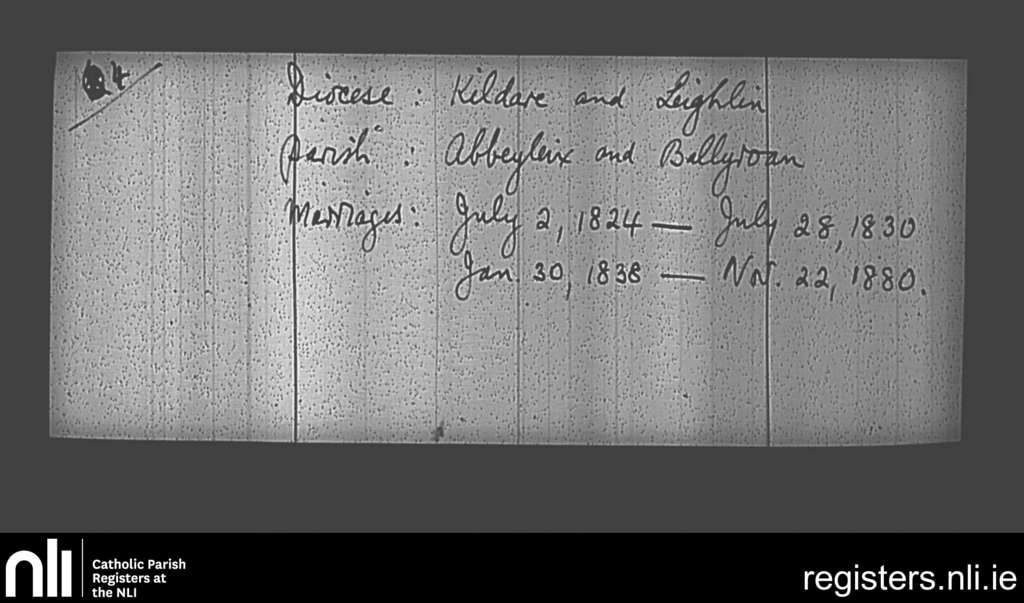 4
Diocese : Kildare and Leighlin
Parish : Abbeyleix and Ballyroan
Marriages : July 2, 1824 — July 28, 1830
Jan. 30, 1838 — Nov. 22, 1880.
nli
Catholic Parish
Registers at
the NLI
registers.nli.ie